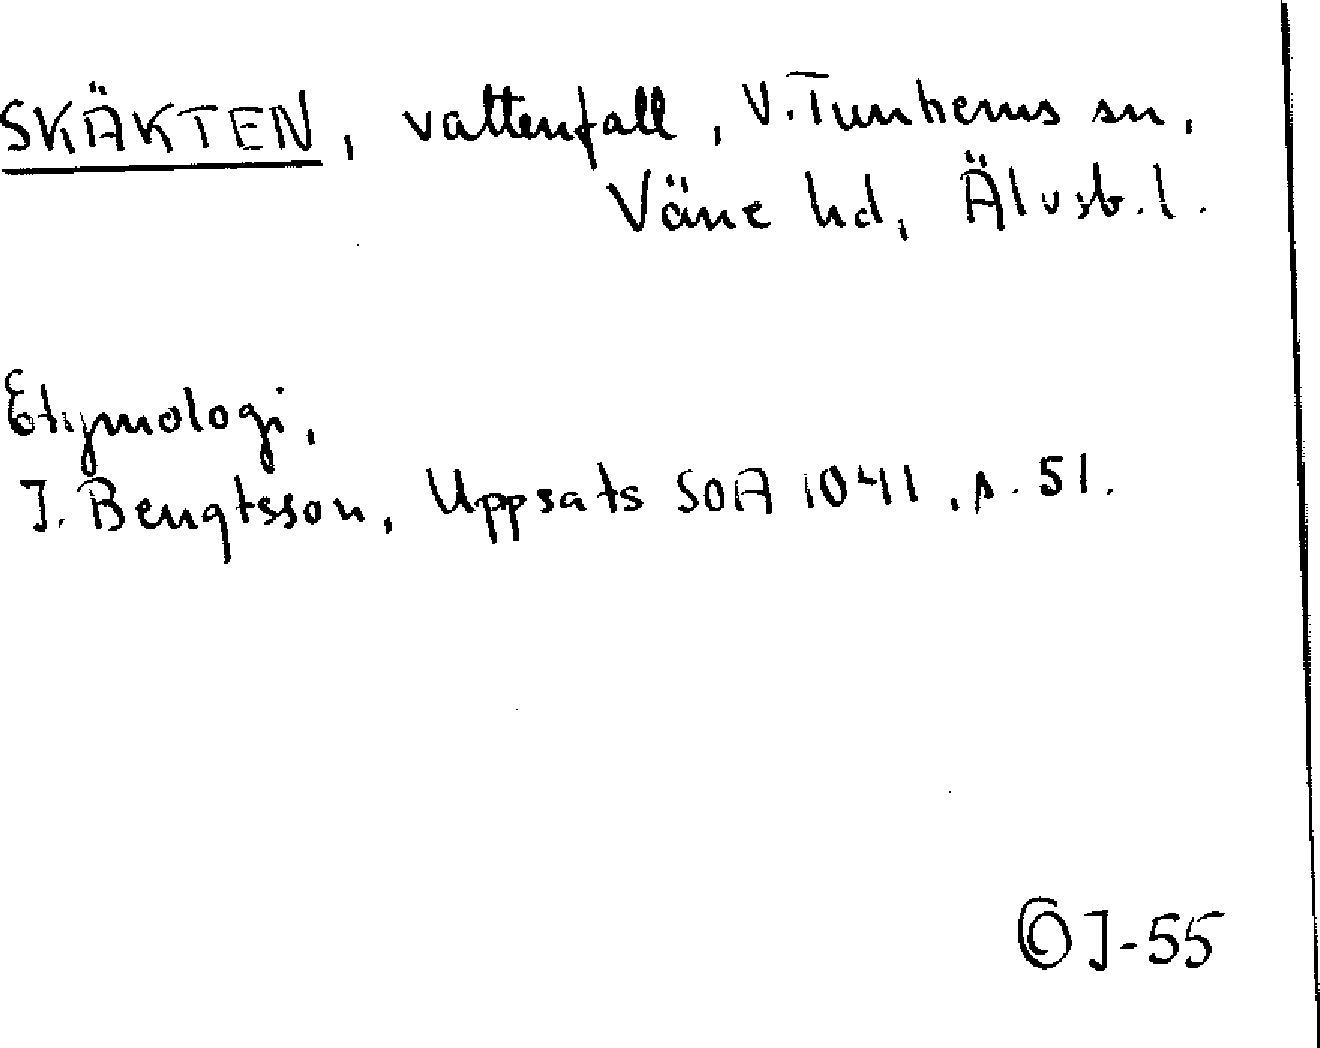 SKÄKTEN, vattenfall, V. Tunhems sn,
Väne hd, Älvsb. l.
Etymologi,
J. Bengtsson, Uppsats SOA 1041, s. 51.
© J-55